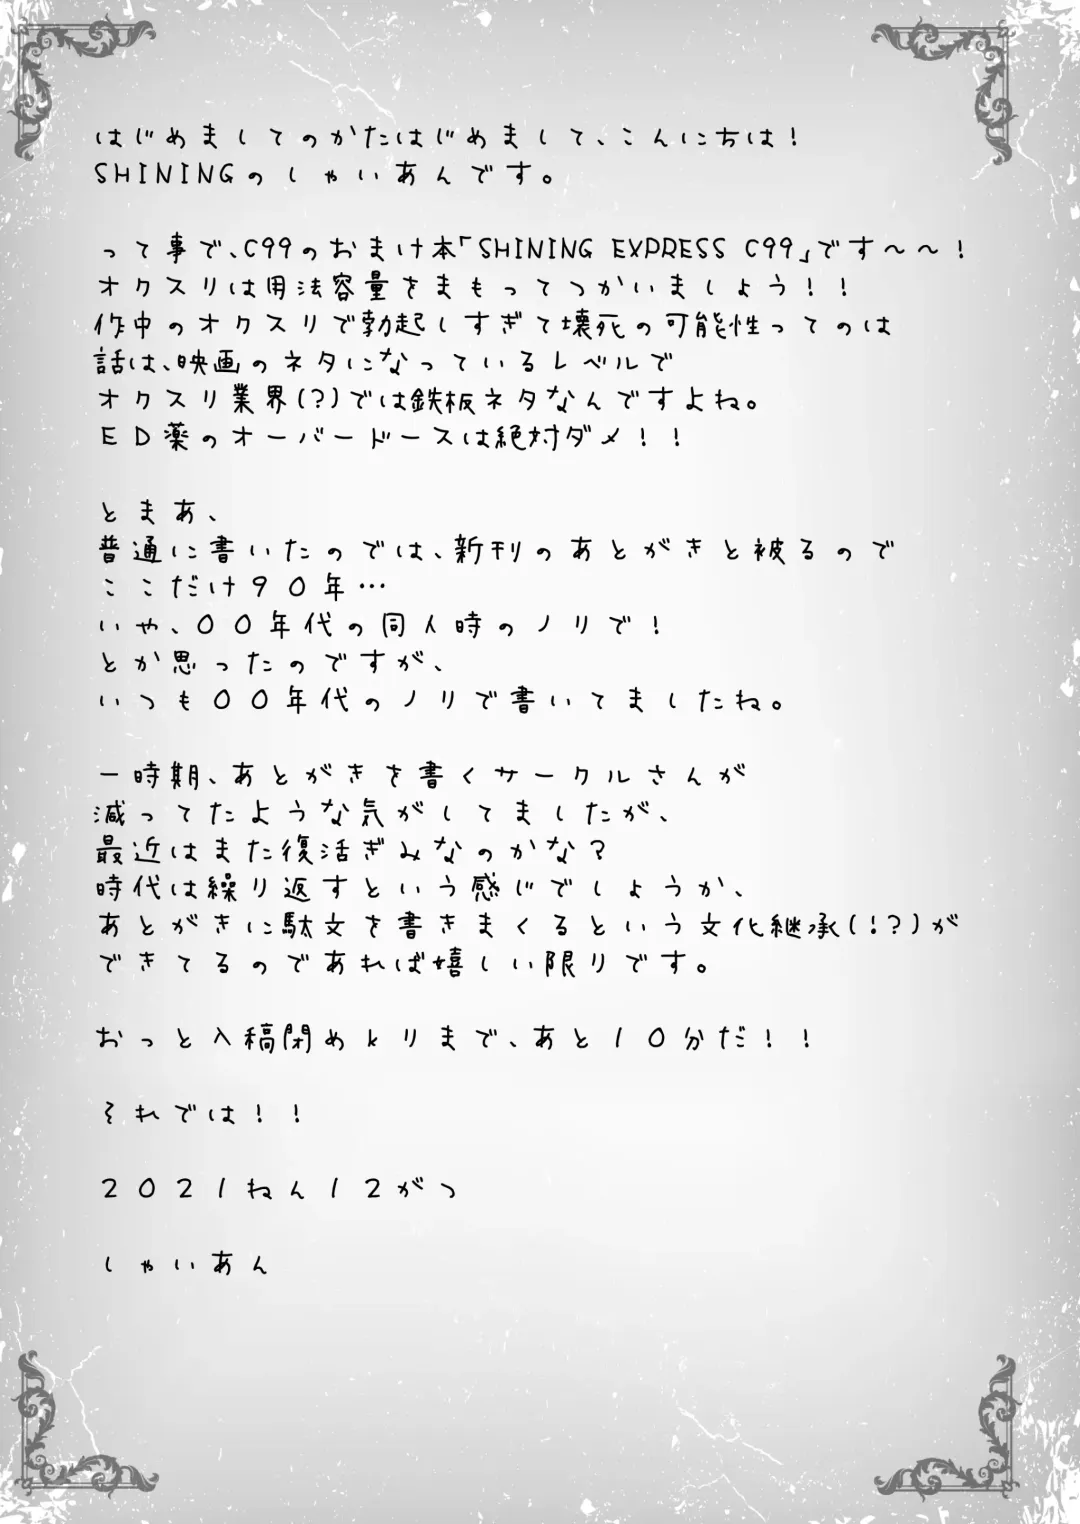 はじめましてのかたはじめまして、こんに方は！
SHININGのしゃいあんです。
って事で、C99のおまけ本「SHINING EXPRESS C99」です～～！
オクスリは用法容量をまもってつかいましょう！！
作中のオクスリで勃起しすぎて壊死の可能性ってのは
話は、映画のネタになっているレベルで
オクスリ業界(？)では鉄板ネタなんですよね。
ＥＤ薬のオーバードースは絶対ダメ！！
とまあ、
普通に書いたのでは、新刊のあとがきと被るので
ここだけ９０年…
いや、００年代の同人時のノリで！
とか思ったのですが、
いつも００年代のノリで書いてましたね。
一時期、あとがきを書くサークルさんが
減ってたような気がしてましたが、
最近はまた復活ぎみなのかな？
時代は繰り返すという感じでしょうか、
あとがきに駄文を書きまくるという文化継承(！？)が
できてるのであれば嬉しい限りです。
おっと入稿閉めkリまで、あと１０分だ！！
それでは！！
２０２１ねん１２がつ
しゃいあん